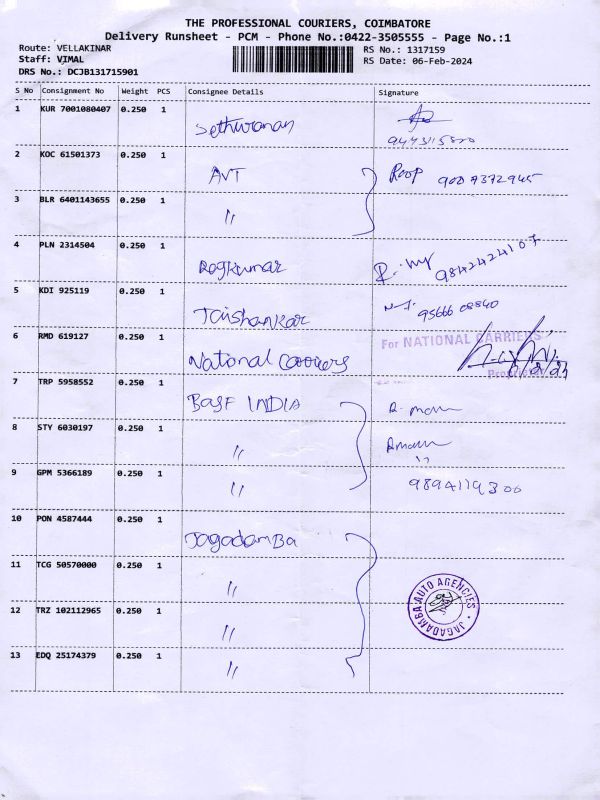 THE PROFESSIONAL COURIERS, COIMBATORE
Delivery Runsheet - PCM - Phone No.:0422-3505555 - Page No.:1
Route: VELLAKINAR RS No.: 1317159
Staff: VIMAL RS Date: 06-Feb-2024
DRS No.: DCJB131715901
S No Consignment No Weight PCS Consignee Details Signature
1 KUR 7001080407 0.250 1
2 KOC 61501373 0.250 1 AVT Roop
3 BLR 6401143655 0.250 1 "
4 PLN 2314504 0.250 1 Rogkumar 9842424107
5 KDI 925119 0.250 1 Jaishankar
6 RMD 619127 0.250 1 National Carriers For NATIONAL CARRIERS
Proprietor
7 TRP 5958552 0.250 1 BASF INDIA R. mani
8 STY 6030197 0.250 1 "
9 GPM 5366189 0.250 1 " 9894119300
10 PON 4587444 0.250 1 Jagadamba
11 TCG 50570000 0.250 1 "
JAGADAMBA AUTO AGENCIES
12 TRZ 102112965 0.250 1 "
13 EDQ 25174379 0.250 1 "